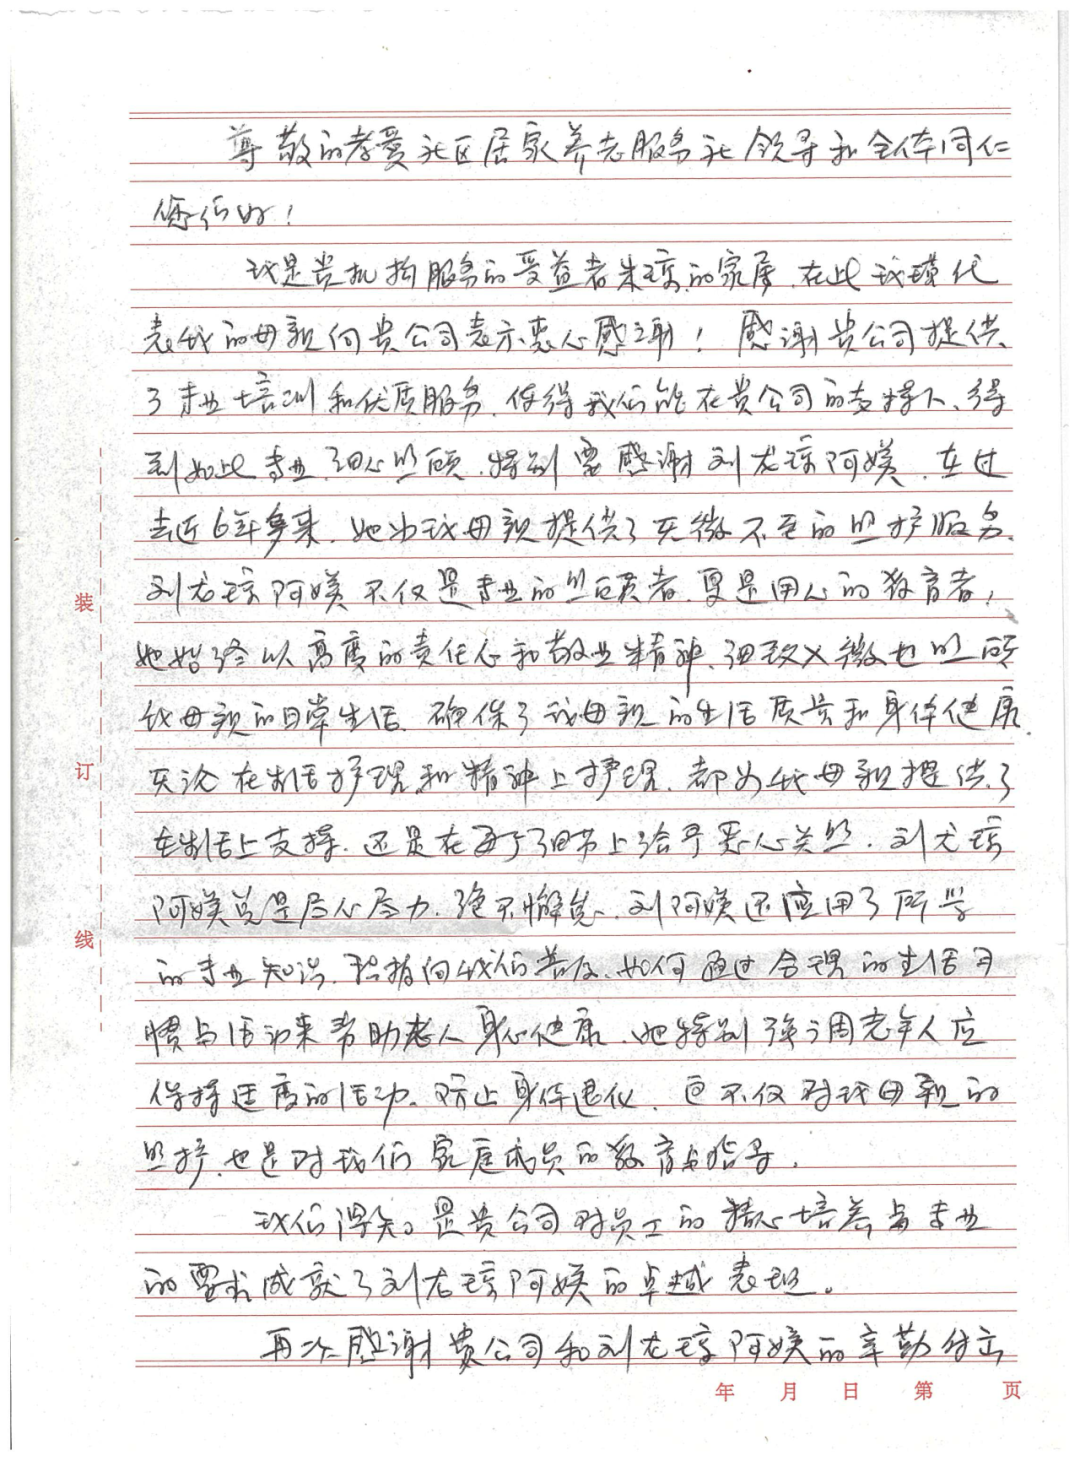 尊敬的孝爱社区居家养老服务社领导和全体同仁
您们好！
我是贵机构服务的受益者朱琼的家属，在此我谨代
表我的母亲向贵公司表示衷心感谢！感谢贵公司提供
了专业培训和优质服务，使得我们能在贵公司的支持下、得
到如此专业、细心照顾，特别要感谢刘龙琼阿姨，在过
去近6年多来，她为我母亲提供了无微不至的照护服务。
刘龙琼阿姨不仅是专业的照顾者，更是用心的教育者，
她始终以高度的责任心和敬业精神、细致入微地照顾
我母亲的日常生活，确保了我母亲的生活质量和身体健康
无论在生活护理和精神上护理，都为我母亲提供了
在生活上支持，还是在每于细节上给予悉心关照，刘龙琼
阿姨总是尽心尽力，绝不懈怠、刘阿姨还应用了所学
的专业知识，积极向我们普及，如何通过合理的生活习
惯与活动来帮助老人身心健康，她特别强调老年人应
保持适度的活动，防止身体退化，这不仅对我母亲的
照护，也是对我们家庭成员的教育与指导。
我们得知是贵公司对员工的精心培养与专业
的要求成就了刘龙琼阿姨的卓越表现。
再次感谢贵公司和刘龙琼阿姨的辛勤付出
装
订
线
年 月 日 第 页